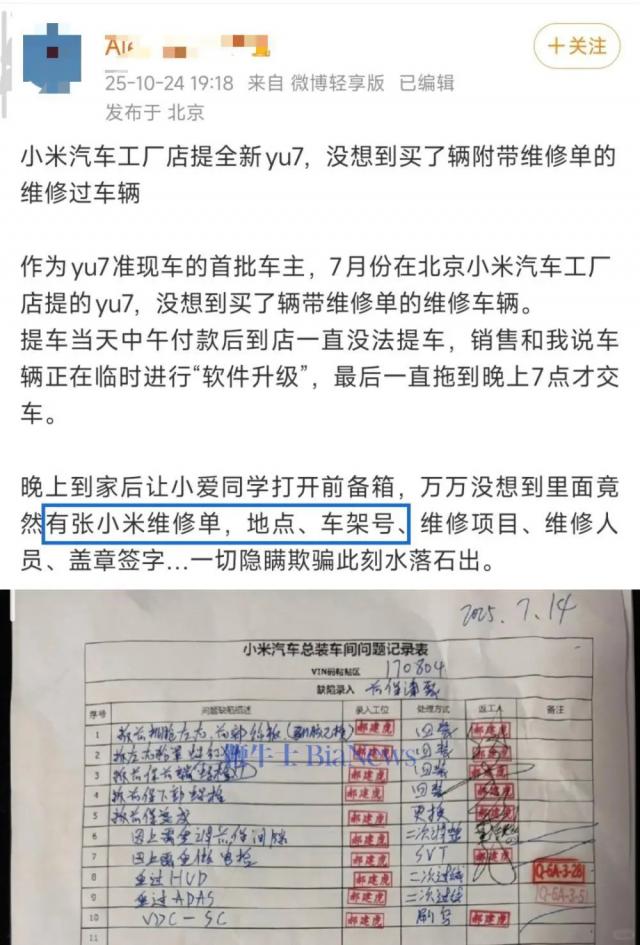 Ale
+关注
25-10-24 19:18 来自 微博轻享版 已编辑
发布于 北京
小米汽车工厂店提全新yu7，没想到买了辆附带维修单的
维修过车辆
作为yu7准现车的首批车主，7月份在北京小米汽车工厂
店提的yu7，没想到买了辆带维修单的维修车辆。
提车当天中午付款后到店一直没法提车，销售和我说车
辆正在临时进行“软件升级”，最后一直拖到晚上7点才交
车。
晚上到家后让小爱同学打开前备箱，万万没想到里面竟
然有张小米维修单，地点、车架号、维修项目、维修人
员、盖章签字...一切隐瞒欺骗此刻水落石出。
2025.7.14
小米汽车总装车间问题记录表
VIN码粘贴区 170804
缺陷录入
序号 问题缺陷描述 录入工位 处理方式 返工人 备注
1 郝建虎 回装 郝建虎
2 郝建虎 回装 郝建虎
3 郝建虎 回装 郝建虎
4 郝建虎 回装 郝建虎
5 郝建虎 更换 郝建虎
6 郝建虎 二次调整
7 郝建虎 SVT 郝建虎
8 重过HUD 郝建虎 二次过线 Q-6A-3-28
9 重过ADAS 郝建虎 二次过线 Q-6A-3-5
10 VDC-SC 郝建虎 刷写 郝建虎
11
鞭牛士 BiaNews